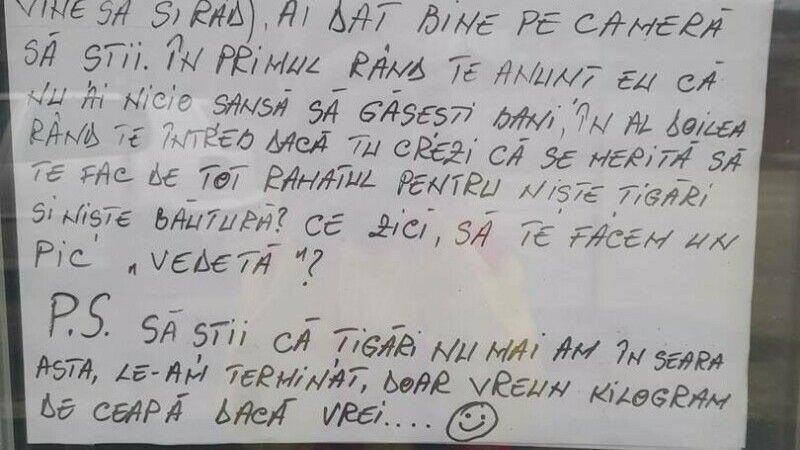 VINE SĂ ȘI RAD), AI DAT BINE PE CAMERĂ
SĂ ȘTII. ÎN PRIMUL RÂND TE ANUNT EU CĂ
NU AI NICIO ȘANSĂ SĂ GĂSEȘTI BANI, ÎN AL DOILEA
RÂND TE ÎNTREB DACĂ TU CREZI CĂ SE MERITĂ SĂ
TE FAC DE TOT RAHATUL PENTRU NIȘTE ȚIGĂRI
ȘI NIȘTE BĂUTURĂ? CE ZICI, SĂ TE FACEM UN
PIC „VEDETĂ"?
P.S. SĂ ȘTII CĂ ȚIGĂRI NU MAI AM ÎN SEARA
ASTA, LE-AM TERMINAT, DOAR VREUN KILOGRAM
DE CEAPĂ DACĂ VREI....